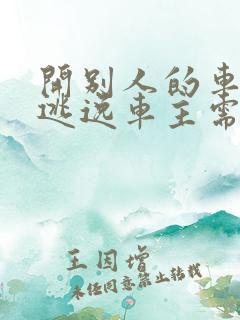 開别人的車
逃逸車主需
王因增
未经同意禁止转载